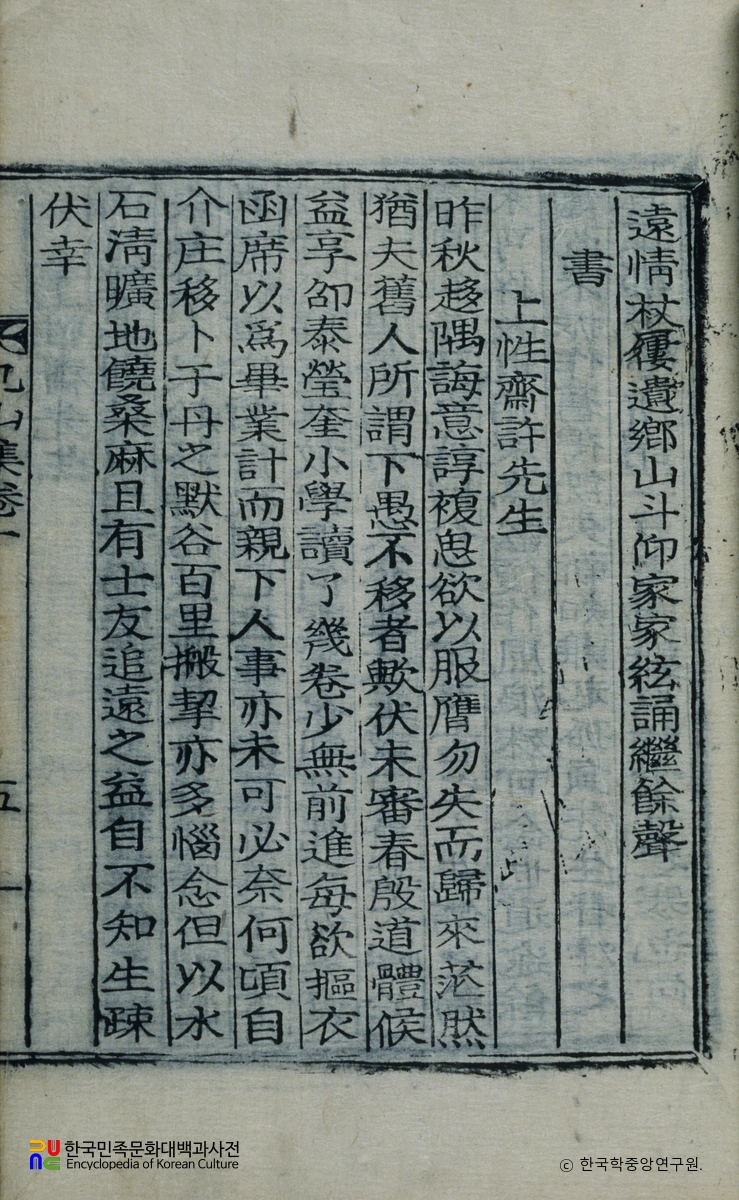 遠情杖屨遺鄉山斗仰家家絃誦繼餘聲
書
上性齋許先生
昨秋趍隅誨意諄複思欲以服膺勿失而歸來茫然
猶夫舊人所謂下愚不移者歟伏未審春殷道體候
益享卲泰瑩奎小學讀了幾卷少無前進每欲摳衣
函席以爲畢業計而親下人事亦未可必奈何頃自
介庄移卜于丹之默谷百里搬挈亦多惱念但以水
石淸曠地饒桑麻且有士友追遠之益自不知生踈
伏幸
山集卷一
五
한국민족문화대백과사전
Encyclopedia of Korean Culture
ⓒ 한국학중앙연구원.